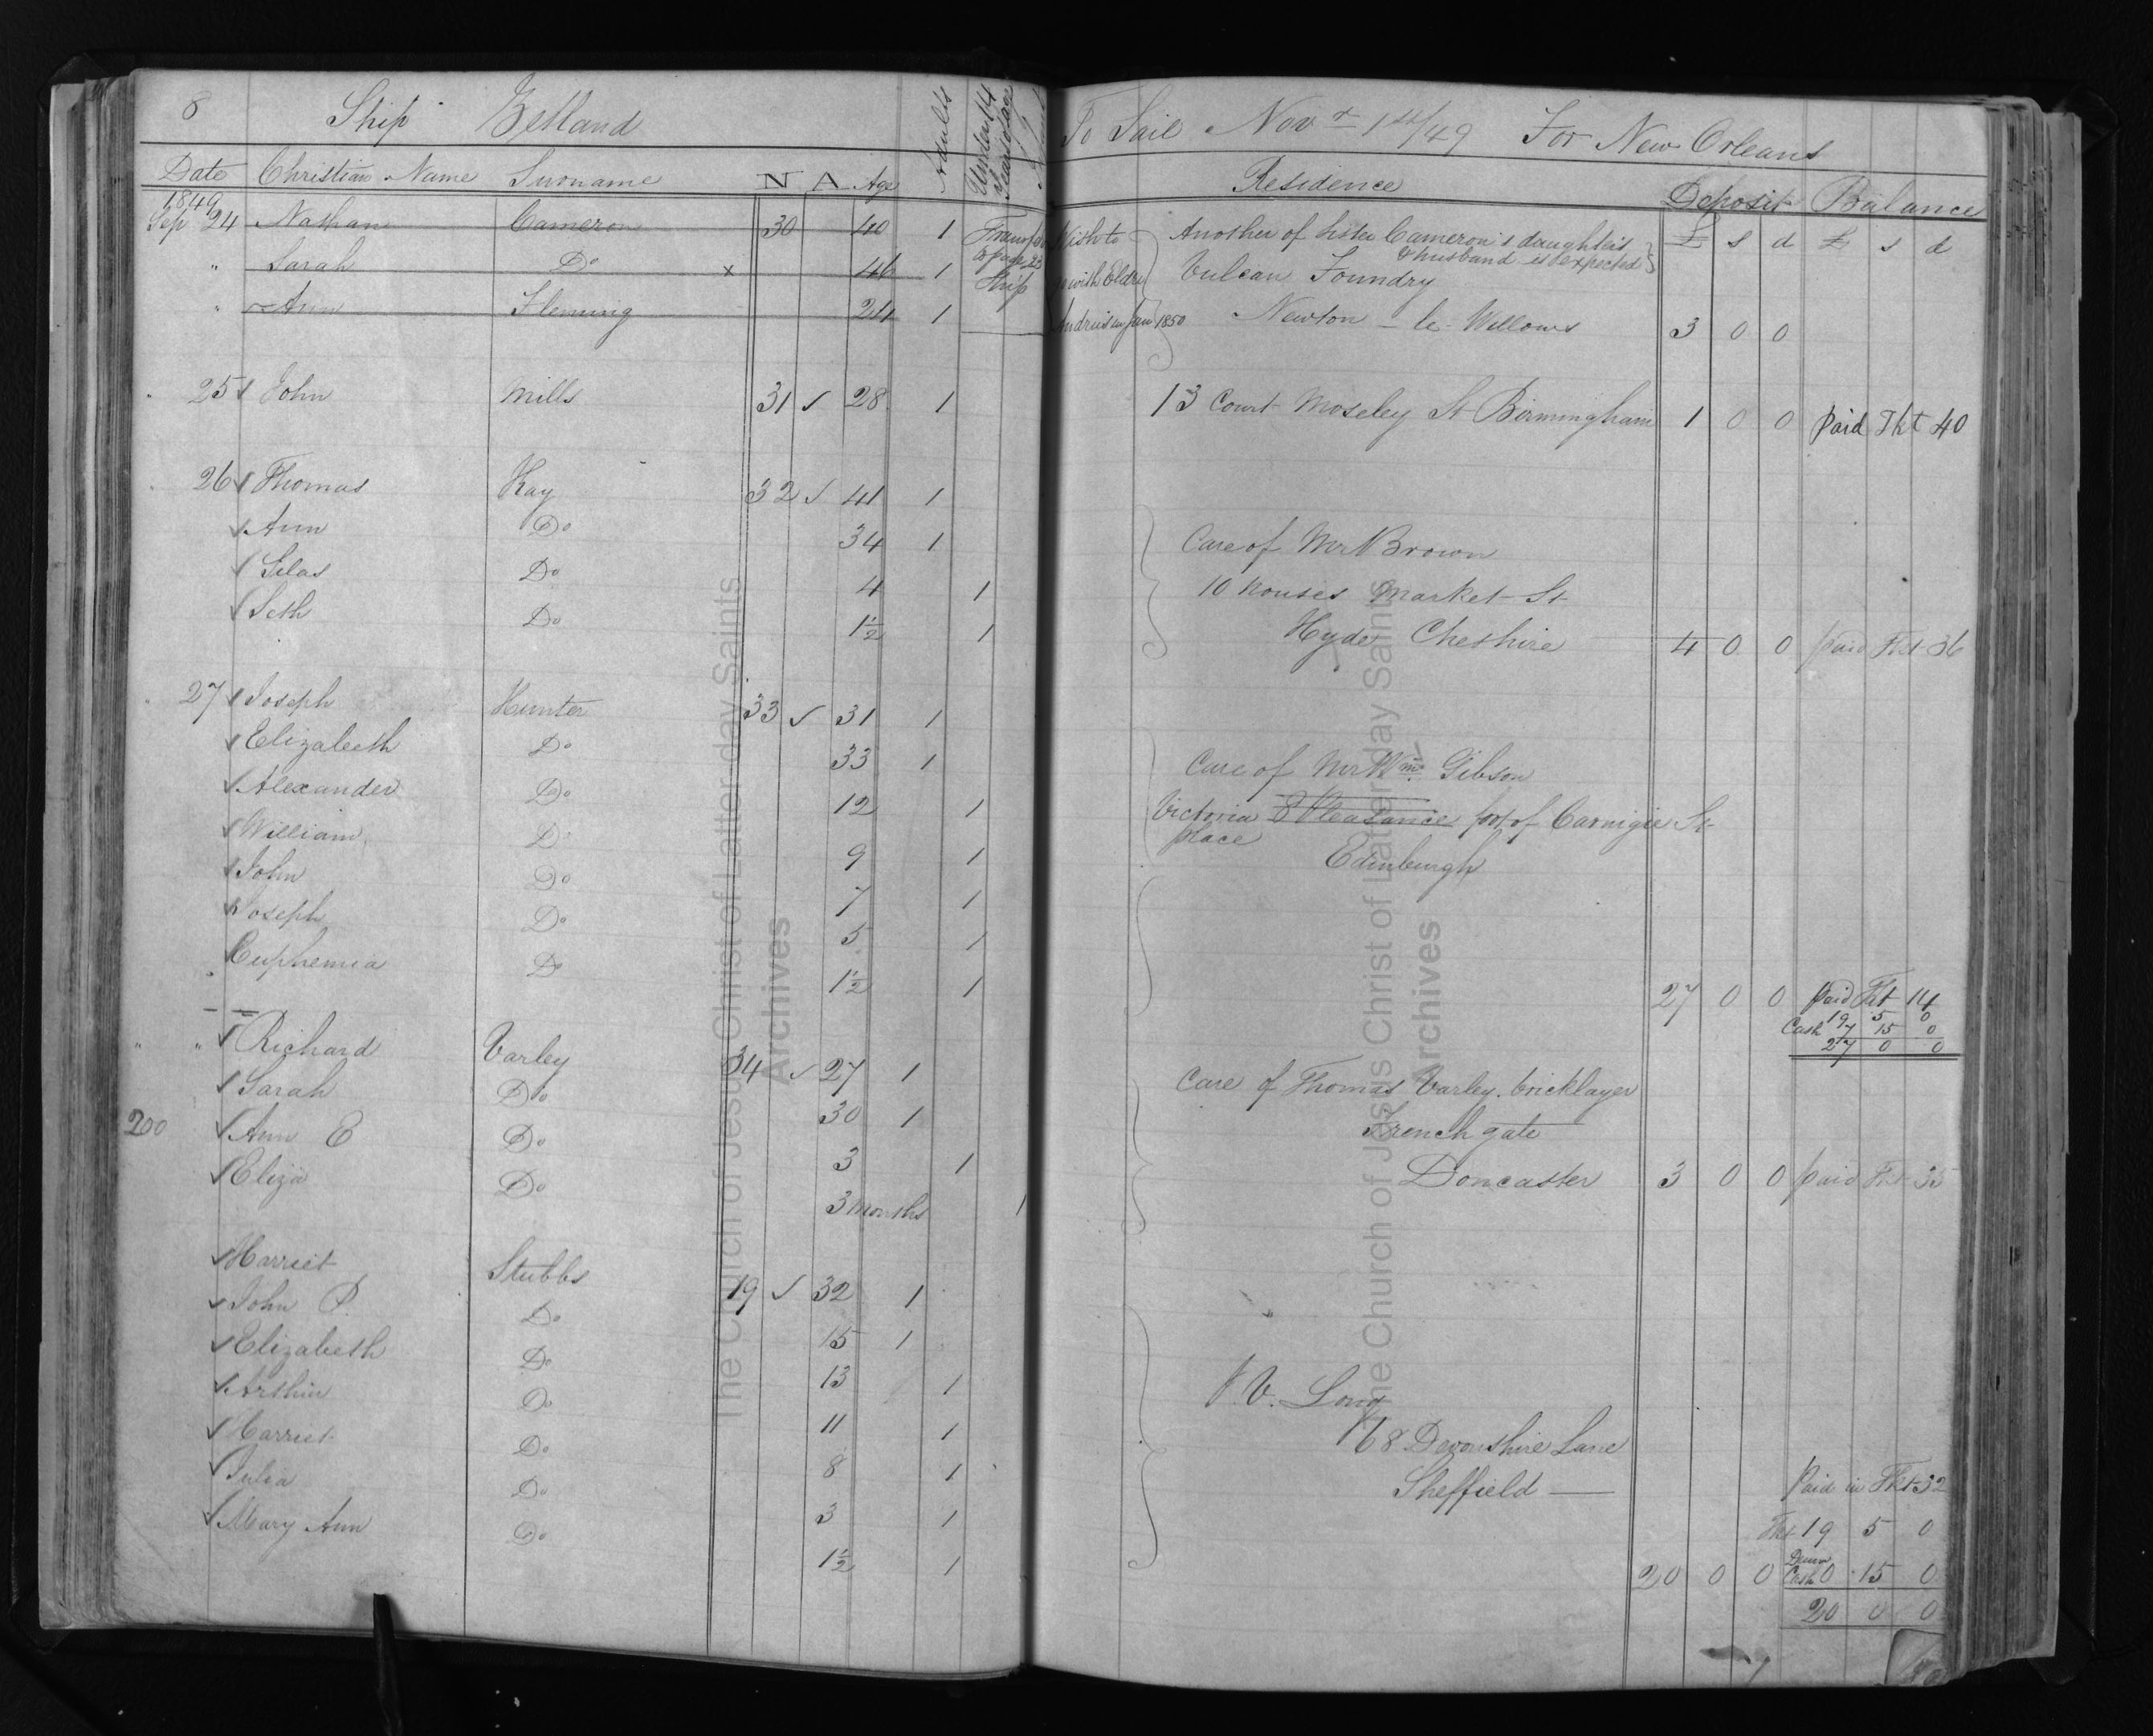 8 Ship Zetland To Sail Novr 1st/49 For New Orleans
Date Christian Name Surname N A Age Adults Under 14 Years of age Residence Deposit Balance
1849 £ s d £ s d
Sep 24 Nathan Cameron 30 40 1 Another of Sister Cameron's daughters
& husband is expected
" Sarah Do x 46 1 Vulcan Foundry
" Ann Fleming 24 1 Newton - le - Willows 3 0 0
Wish to
go with Elder
in Jan 1850
25 John Mills 31 ✓ 28 1 13 Court Moseley St Birmingham 1 0 0 Paid Tkt 40
26 Thomas Kay 32 ✓ 41 1
✓ Ann Do 34 1 Care of Mr Brown
✓ Silas Do 4 1 10 houses Market St
✓ Seth Do 1½ 1 Hyde Cheshire 4 0 0 paid Tkt 36
27 Joseph Hunter 33 ✓ 31 1
✓ Elizabeth Do 33 1 Care of Mr Wm Gibson
✓ Alexander Do 12 1 Victoria 8 Pleasance foot of Carnigie St
place
✓ William Do 9 1 Edinburgh
✓ John Do 7 1
✓ Joseph Do 5 1
Euphemia Do 1½ 1 27 0 0 paid Tkt 14
19 5 0
Cash 7 15 0
27 0 0
" " ✓ Richard Varley 34 ✓ 27 1 Care of Thomas Varley. bricklayer
✓ Sarah Do 30 1 French gate
200 ✓ Ann E Do 3 1 Doncaster 3 0 0 paid Tkt 35
✓ Eliza Do 3 Months 1
✓ Harriet Stubbs 19 ✓ 32 1
✓ John P. Do 15 1
✓ Elizabeth Do 13 1 J. V. Long
✓ Arthur Do 11 1 168 Devonshire Lane
✓ Harriet Do 8 1 Sheffield —
✓ Julia Do 3 1 Paid in Tkt 32
✓ Mary Ann Do 1½ 1 Tkt 19 5 0
20 0 0 Cash 0 15 0
20 0 0
The Church of Jesus Christ of Latter-day Saints
Archives
The Church of Jesus Christ of Latter-day Saints
Archives